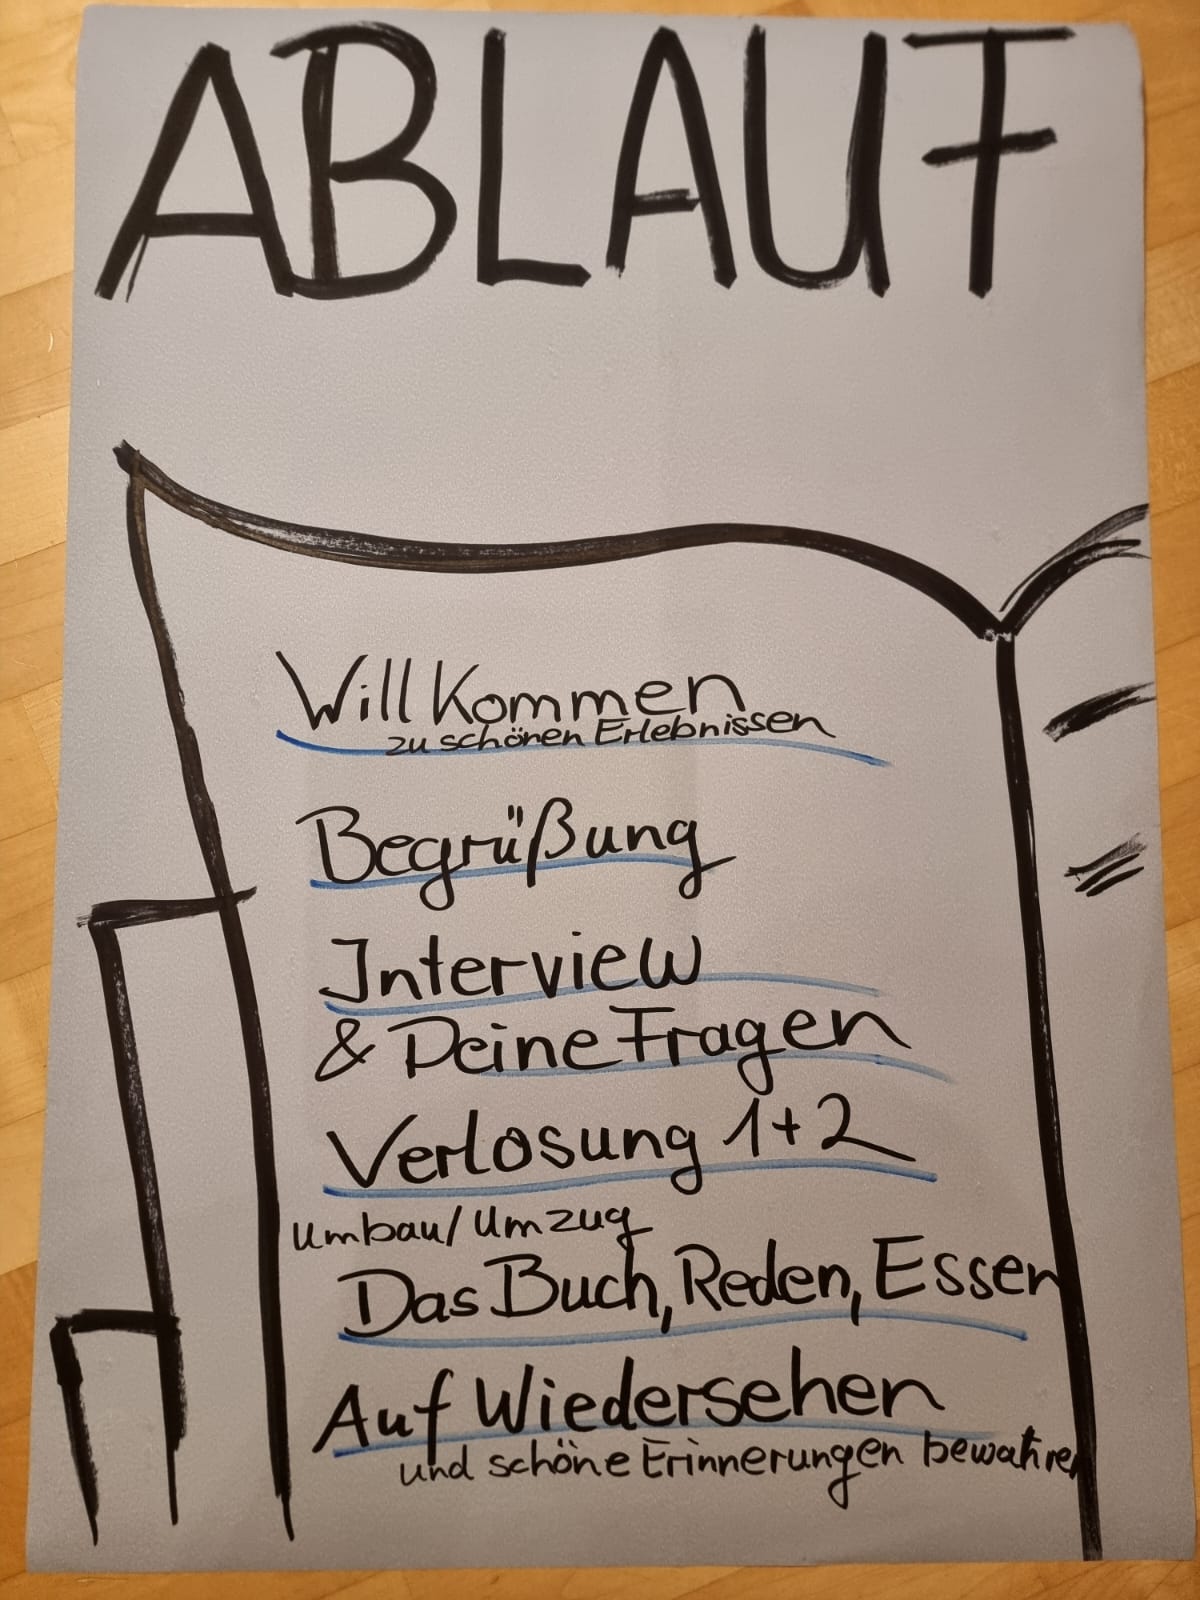 ABLAUF
Willkommen
zu schönen Erlebnissen
Begrüßung
Interview
& Deine Fragen
Verlosung 1+2
Umbau/Umzug
Das Buch, Reden, Essen
Auf Wiedersehen
und schöne Erinnerungen bewahren